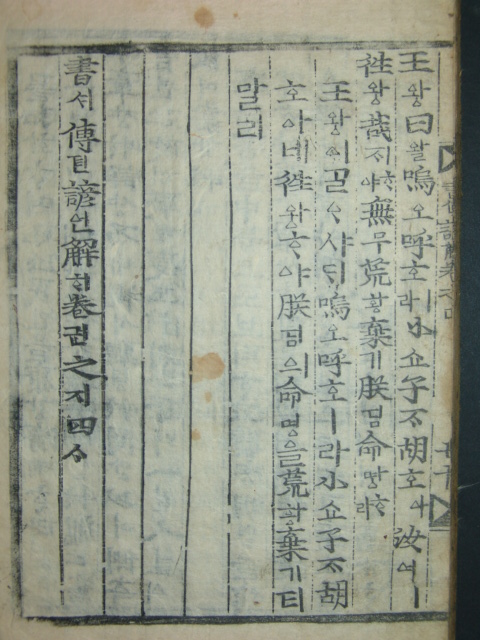 王왕曰왈嗚오呼호ㅣ라小쇼子ᄌᆞ胡호아汝여ㅣ
往왕哉ᄌᆡᄒᆞ야無무荒황棄기朕딤命명ᄒᆞ라
王왕이ᄀᆞᆯᄋᆞ샤ᄃᆡ嗚오呼호ㅣ라小쇼子ᄌᆞ胡
호아네往왕ᄒᆞ야朕딤의命명을荒황棄기티
말라
書셔傳뎐諺언解ᄒᆡ卷권之지四ᄉᆞ